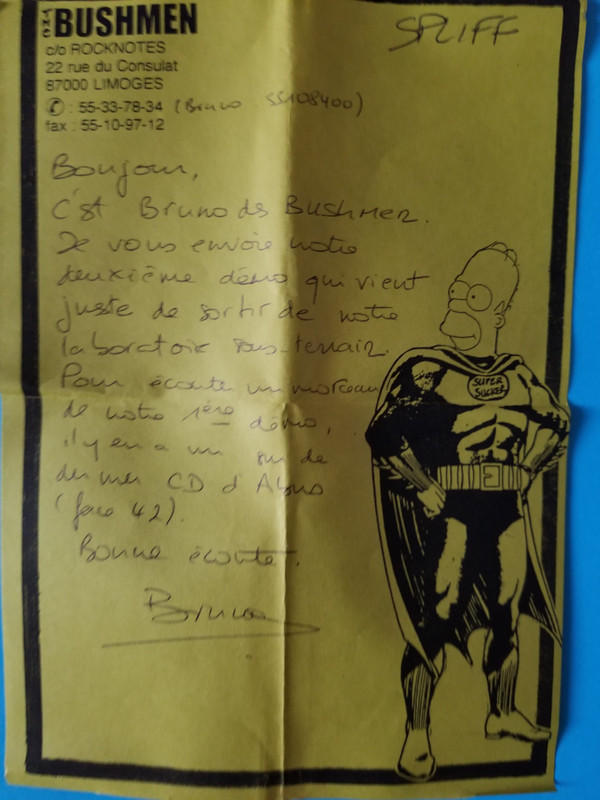 THE BUSHMEN
SPLIFF
c/o ROCKNOTES
22 rue du Consulat
87000 LIMOGES
✆ : 55-33-78-34 (Bruno 55108400)
fax : 55-10-97-12
Bonjour,
C'est Bruno des Bushmen.
Je vous envoie notre
deuxième démo qui vient
juste de sortir de notre
laboratoire sous-terrain.
Pour écouter un morceau
de notre 1ère démo,
il y en a un sur le
dernier CD d'
(face 42).
Bonne écoute.
Bruno
SUPER
SUCKER